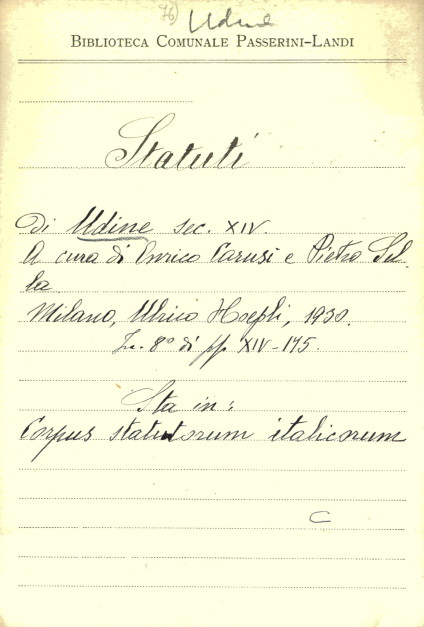 76) Udine
BIBLIOTECA COMUNALE PASSERINI-LANDI
Statuti
di Udine sec. XIV.
A cura di Enrico Carusi e Pietro Sel-
la.
Milano, Ulrico Hoepli, 1930.
In. 8° di pp. XIV-175.
Sta in:
Corpus statutorum italicorum
C